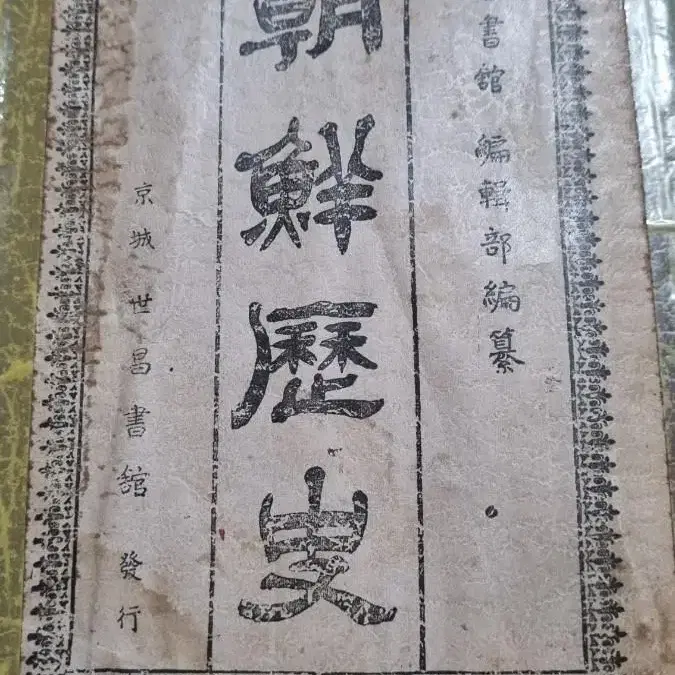 書舘 編輯部編纂
朝鮮歷史
京城 世昌書舘 發行